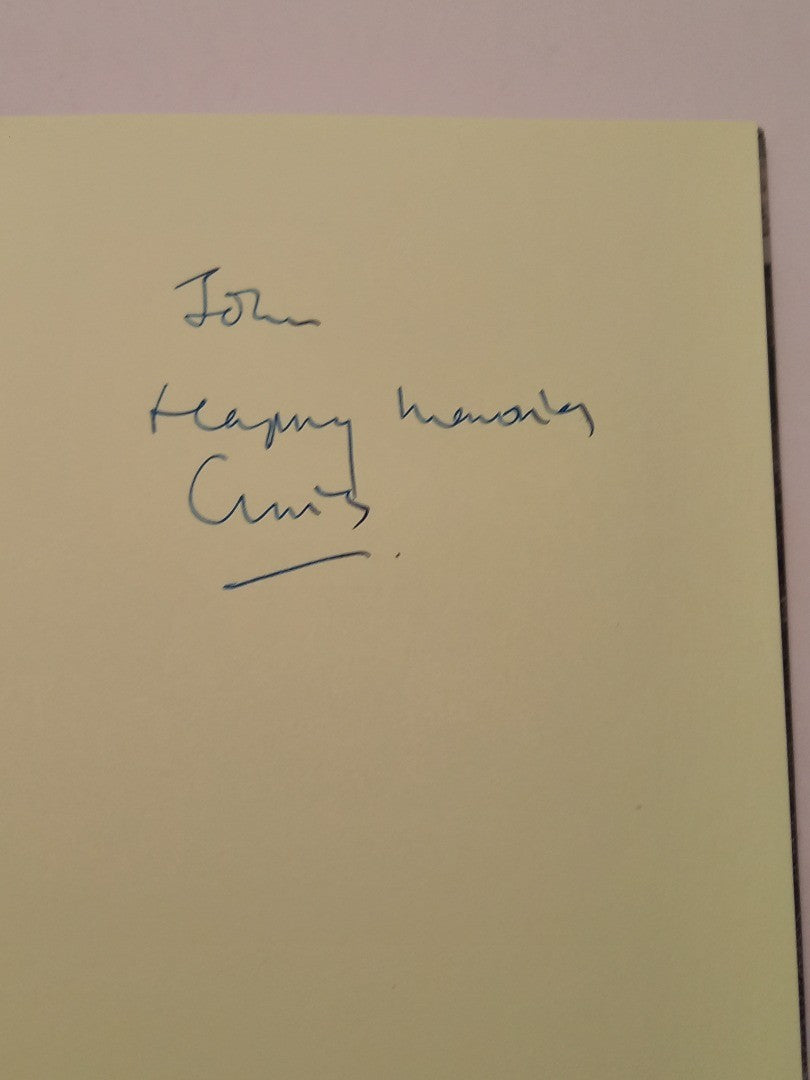 John
Happy memories
Chris